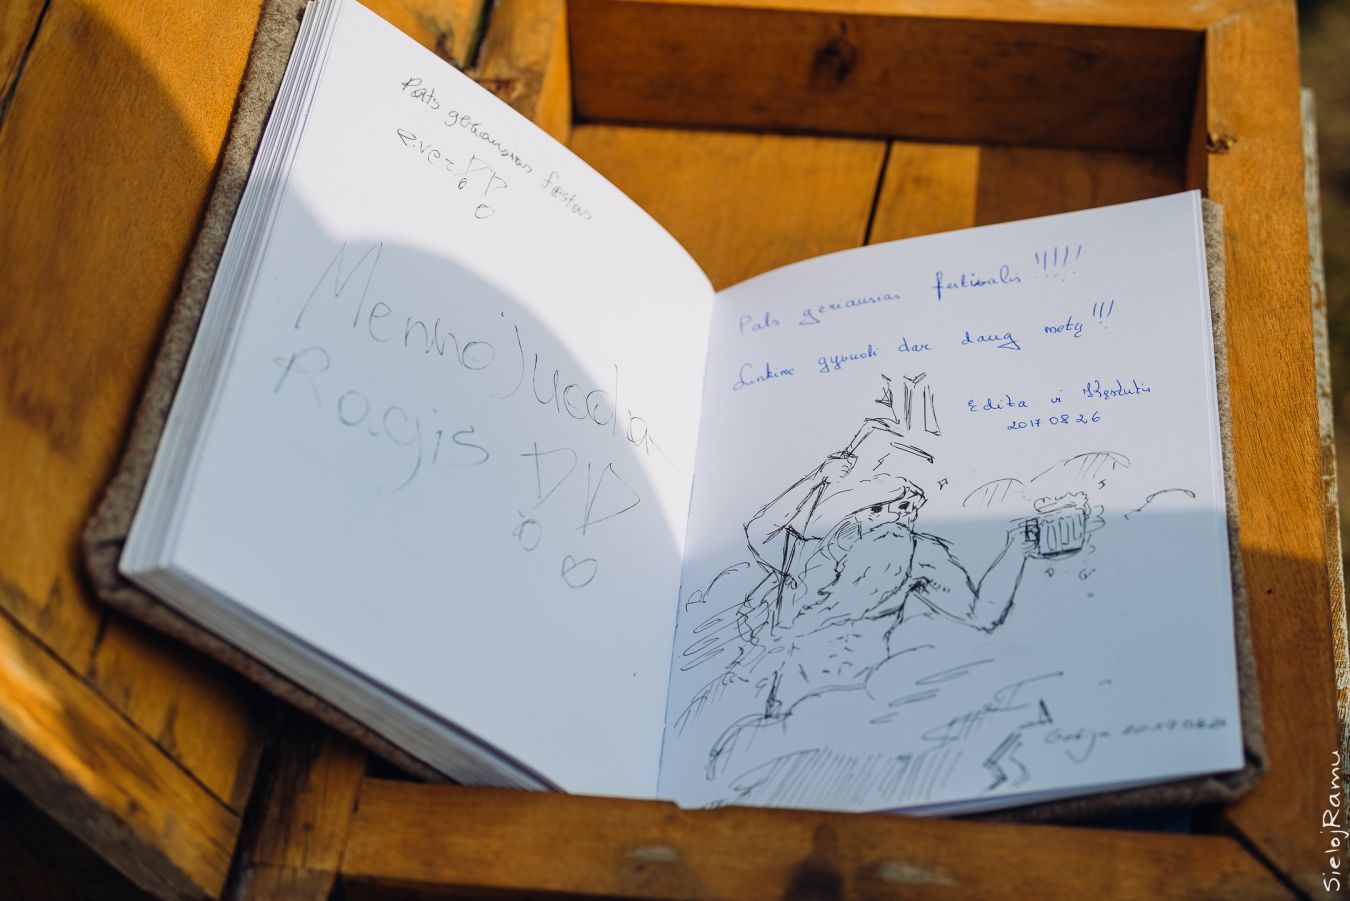 Pats geriausias festas
ever :DD
Menno Juoda
Ragis :DD
Pats geriausias festivalis !!!!!
Linkime gyvuoti dar daug metų !!!
Edita ir Kęstutis
2017 08 26
SielojRamu